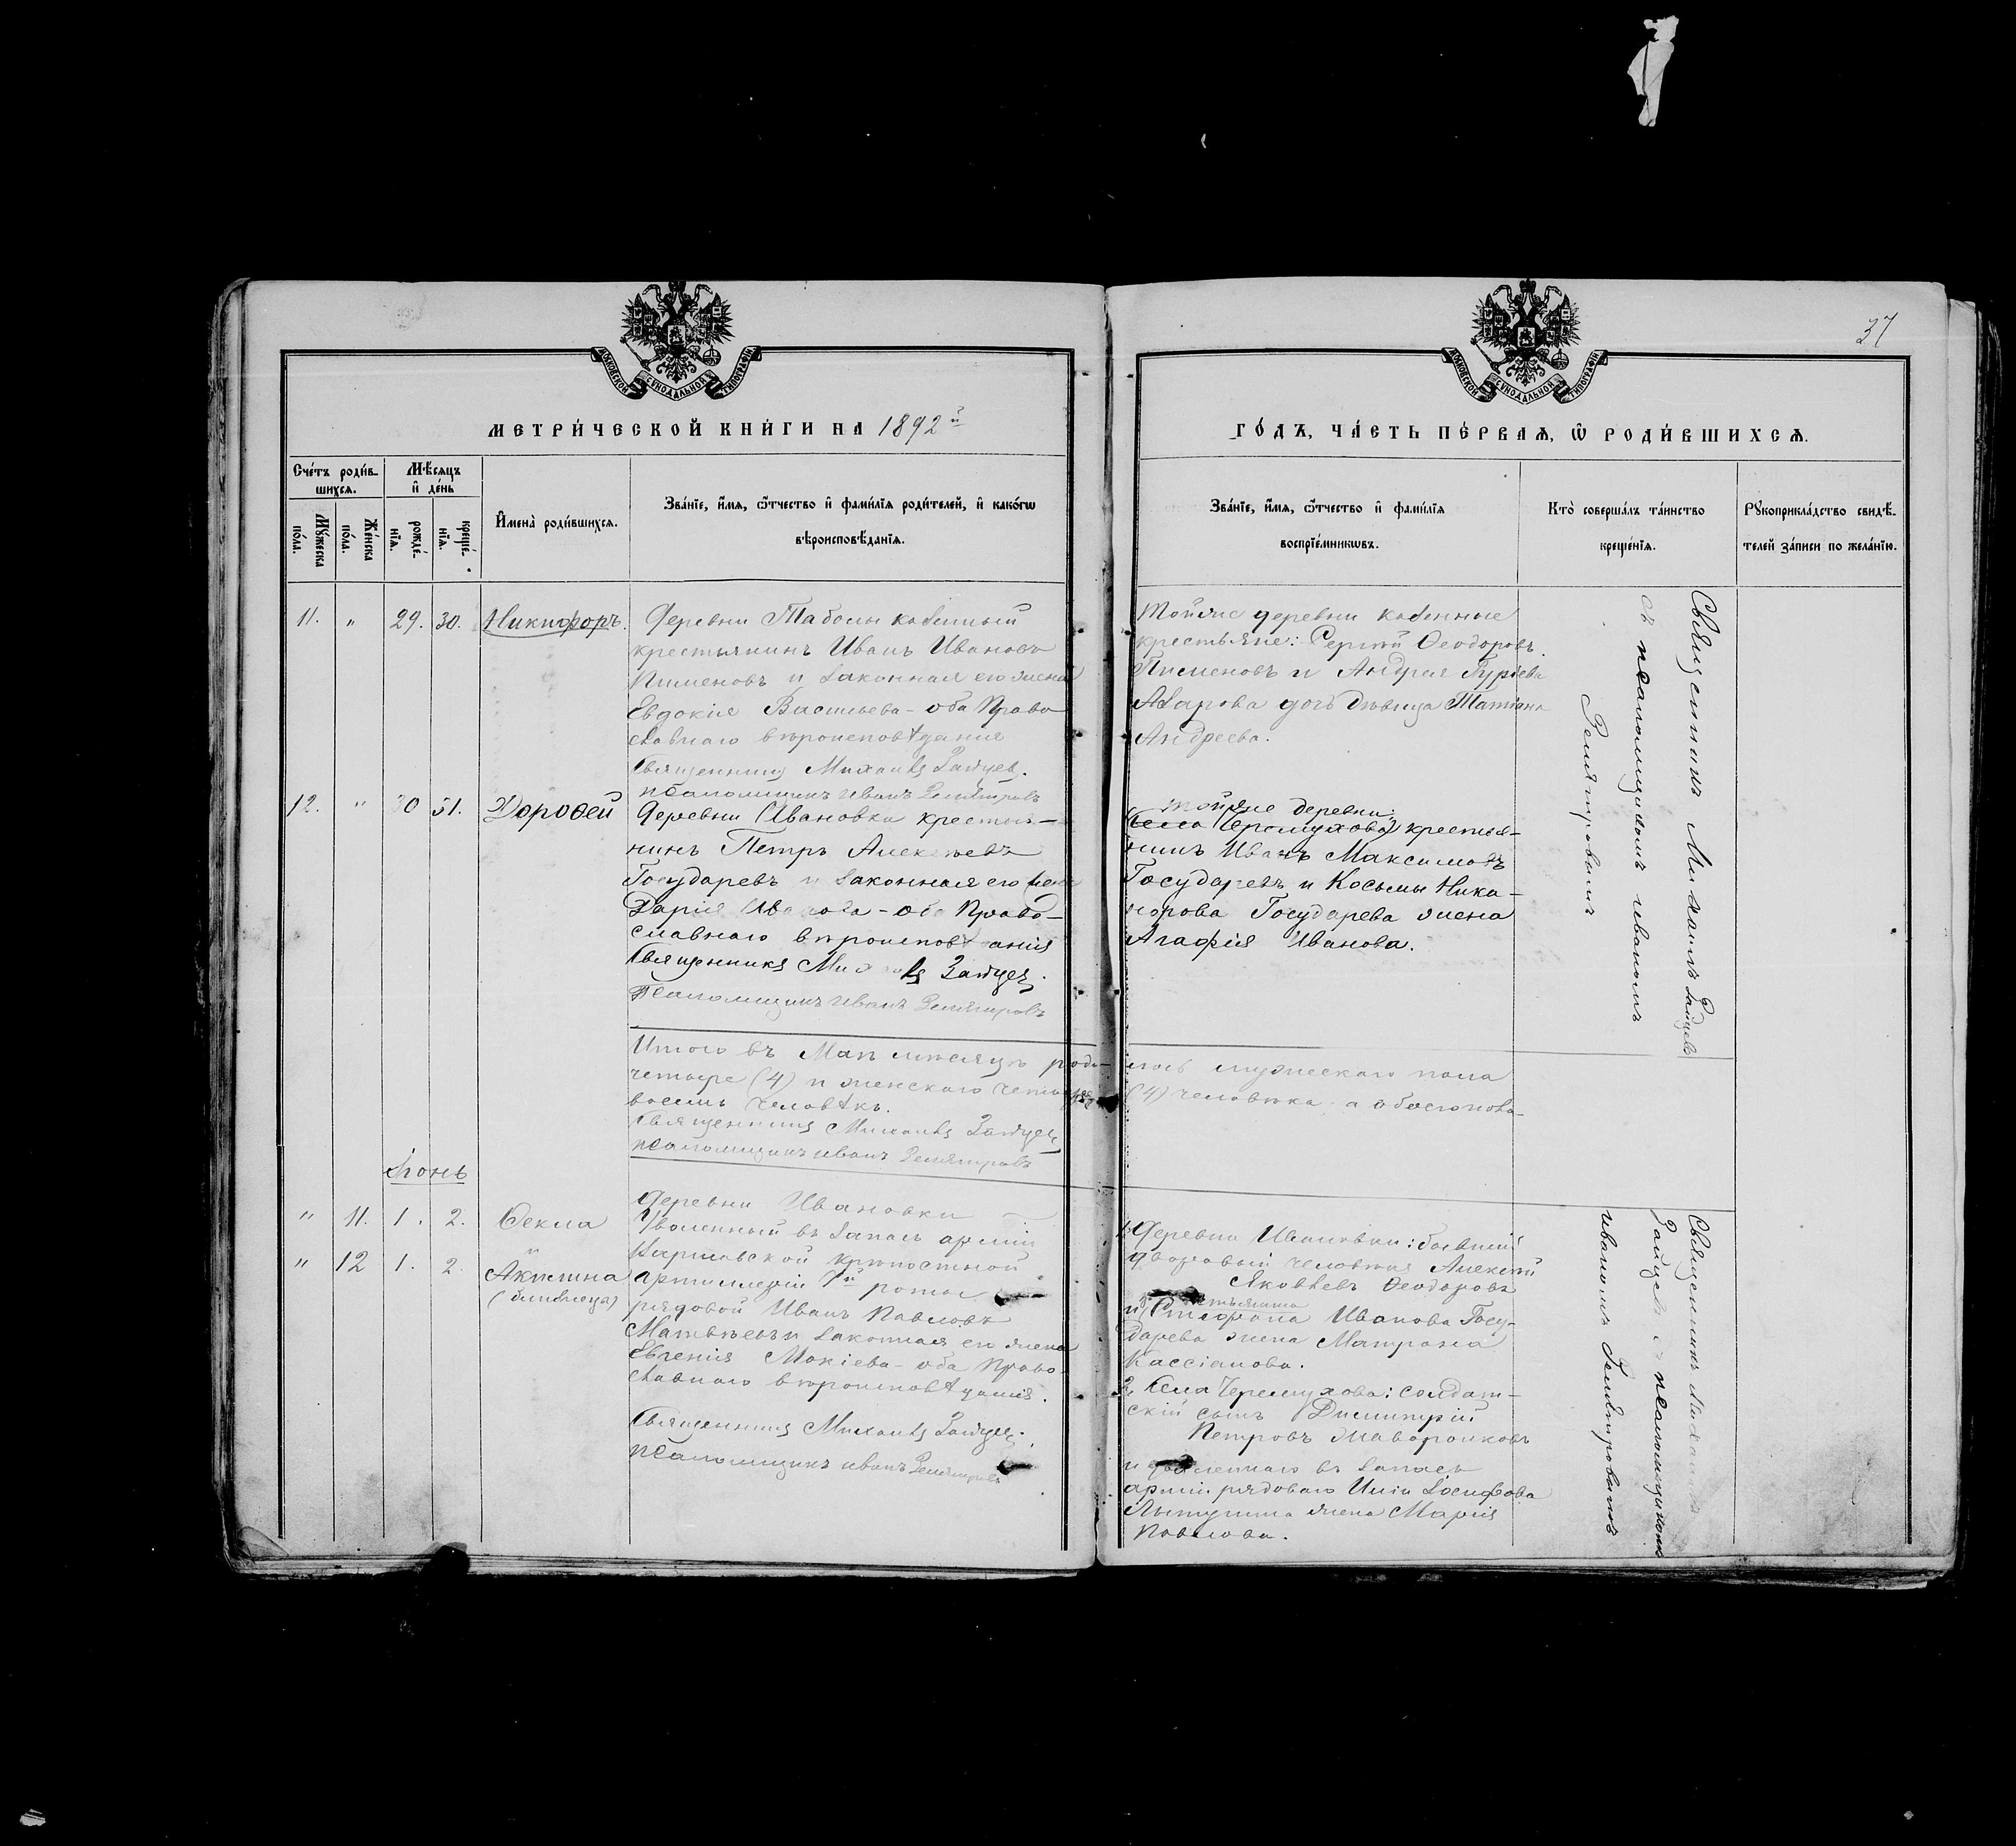 37
МОСКОВСКОЙ СѴНОДАЛЬНОЙ ТИПОГРАФІИ
МОСКОВСКОЙ СѴНОДАЛЬНОЙ ТИПОГРАФІИ
МЕТРИ́ЧЕСКОЙ КНИ́ГИ НА 1892й
ГО́ДЪ, ЧА́СТЬ ПЕ́РВАЯ, Ѡ РОДИ́ВШИХСѦ.
Сче́тъ роди́в-
шихсѧ.
Мѣ́сяцъ
и҆ де́нь
Мꙋ́жеска
по́ла.
Же́нска
по́ла.
рожде́-
нїѧ.
креще́-
нїѧ.
И҆мена̀ роди́вшихсѧ.
Зва́нїе, и҆́мѧ, ѻ҆́тчество и҆ фами́лїѧ роди́телей, и҆ како́гѡ
вѣроисповѣ́данїѧ.
Зва́нїе, и҆́мѧ, ѻ҆́тчество и҆ фами́лїѧ
воспрїе́мникѡвъ.
Кто̀ соверша́лъ та́инство
креще́нїѧ.
Рꙋкоприкла́дство свидѣ́-
телей за́писи по жела́нїю.
11. " 29. 30. Никифоръ.
Деревни Таболы казенный
крестьянинъ Иванъ Ивановъ
Пименовъ и законная его жена
Евдокія Васильева - оба Право
славнаго вѣроисповѣданія
Священникъ Михаилъ Зайцев.
псаломщикъ Иванъ
Тойже деревни казенные
крестьяне: Сергѣй Ѳеодоровъ
Пименовъ и Андрея Гурiева
Азарова дочь дѣвица Татiана
Андреева.
Священникъ Михаилъ Зайцевъ
съ псаломщикомъ Иваномъ
12. " 30 31. Дороѳей
Деревни Ивановки крестья-
нинъ Петръ Алексѣевъ
Государевъ и законная его жена
Дарія Иванова - оба Право-
славнаго вѣроисповѣданія
Священникъ Михаилъ Зайцев.
Псаломщикъ Иванъ
тойже деревни
Села Черемухова крестья-
нинъ Иванъ Максимовъ
Государевъ и Косьмы Ника-
норова Государева жена
Агафія Иванова.
Итого въ Маѣ мѣсяцѣ роди-лось мужескаго пола
четыре (4) и женскаго четыре (4) человѣка, а обоегопола-
восемь человѣкъ.
Священникъ Михаилъ Зайцев
псаломщикъ Иванъ
Іюнь
" 11. 1. 2. Ѳекла
" 12 1. 2. и Акилина
(близнецы)
Деревни Ивановки
Уволенный въ запасъ арміи
крѣпостной
артиллеріи роты
рядовой Иванъ Павловъ
Матвѣевъ и законная его жена
Евгенія Мокіева - оба Право-
славнаго вѣроисповѣданія.
Священникъ Михаилъ Зайцев.
псаломщикъ Иванъ
1, Деревни Ивановки: бывшій
дворовый человѣкъ Алексѣй
Яковлевъ Ѳеодоровъ
и Иванова Госу-
дарева жена Матрона
Кассіанова.
2, Села Черемухова: солдат-
скій сынъ Димитрій
Петровъ Жаворонковъ
и уволеннаго въ запасъ
арміи рядоваго Иліи Іосифова
жена Марія
Павлова.
Священникъ Михаилъ
Зайцевъ съ псаломщикомъ
Иваномъ